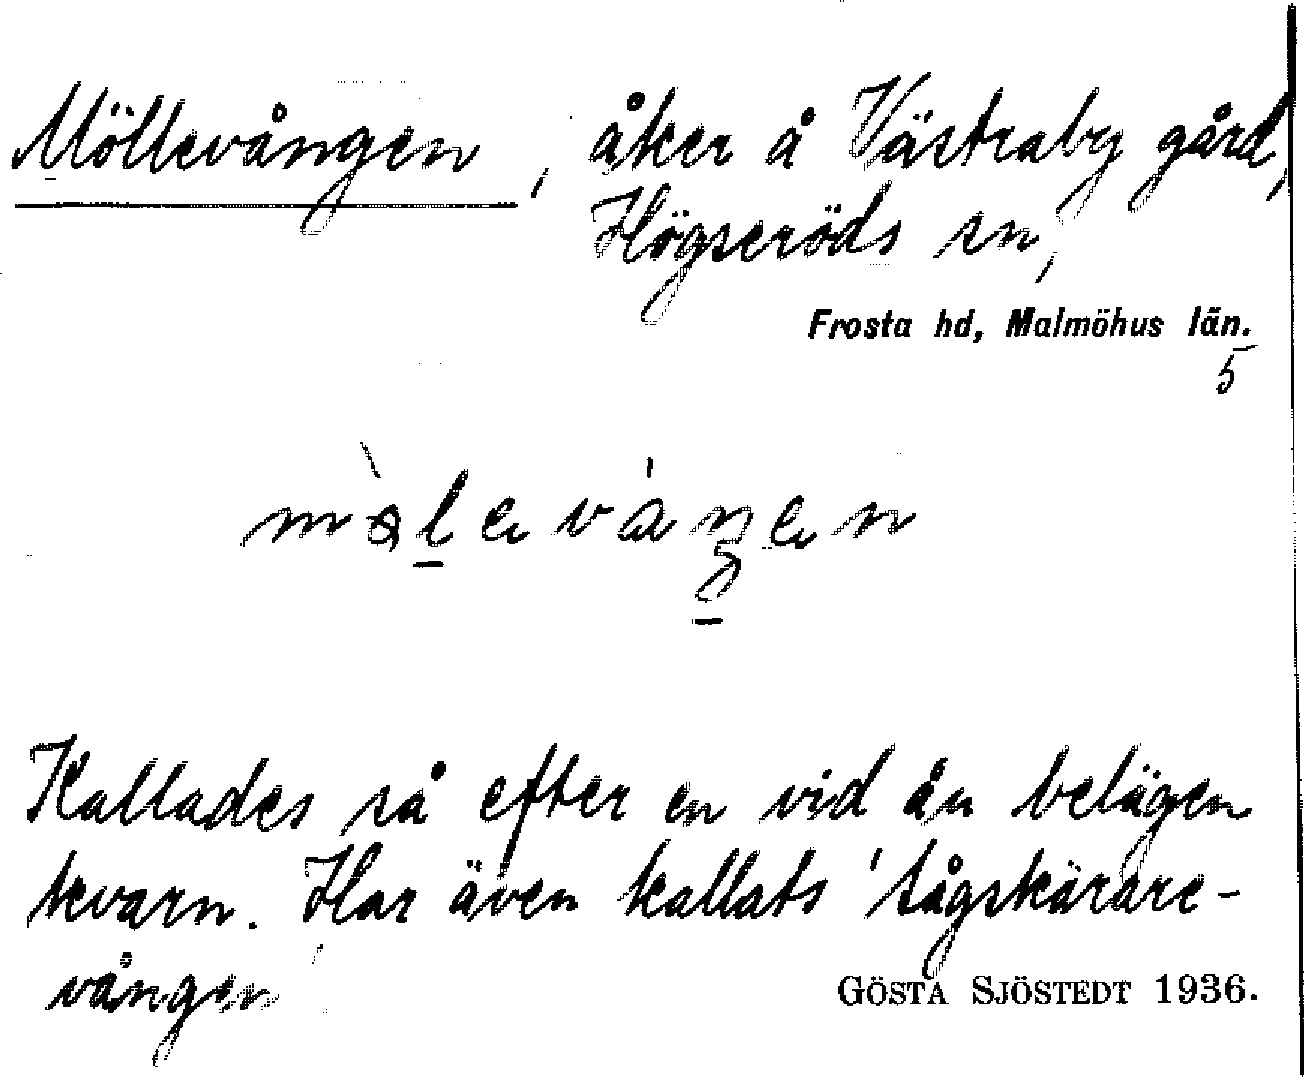 Möllevången, åker å Västraby gård,
Högseröds sn,
Frosta hd, Malmöhus län.
5
Kallades så efter en vid ån belägen
kvarn. Har även kallats 'tågskärare-
vången'
GÖSTA SJÖSTEDT 1936.